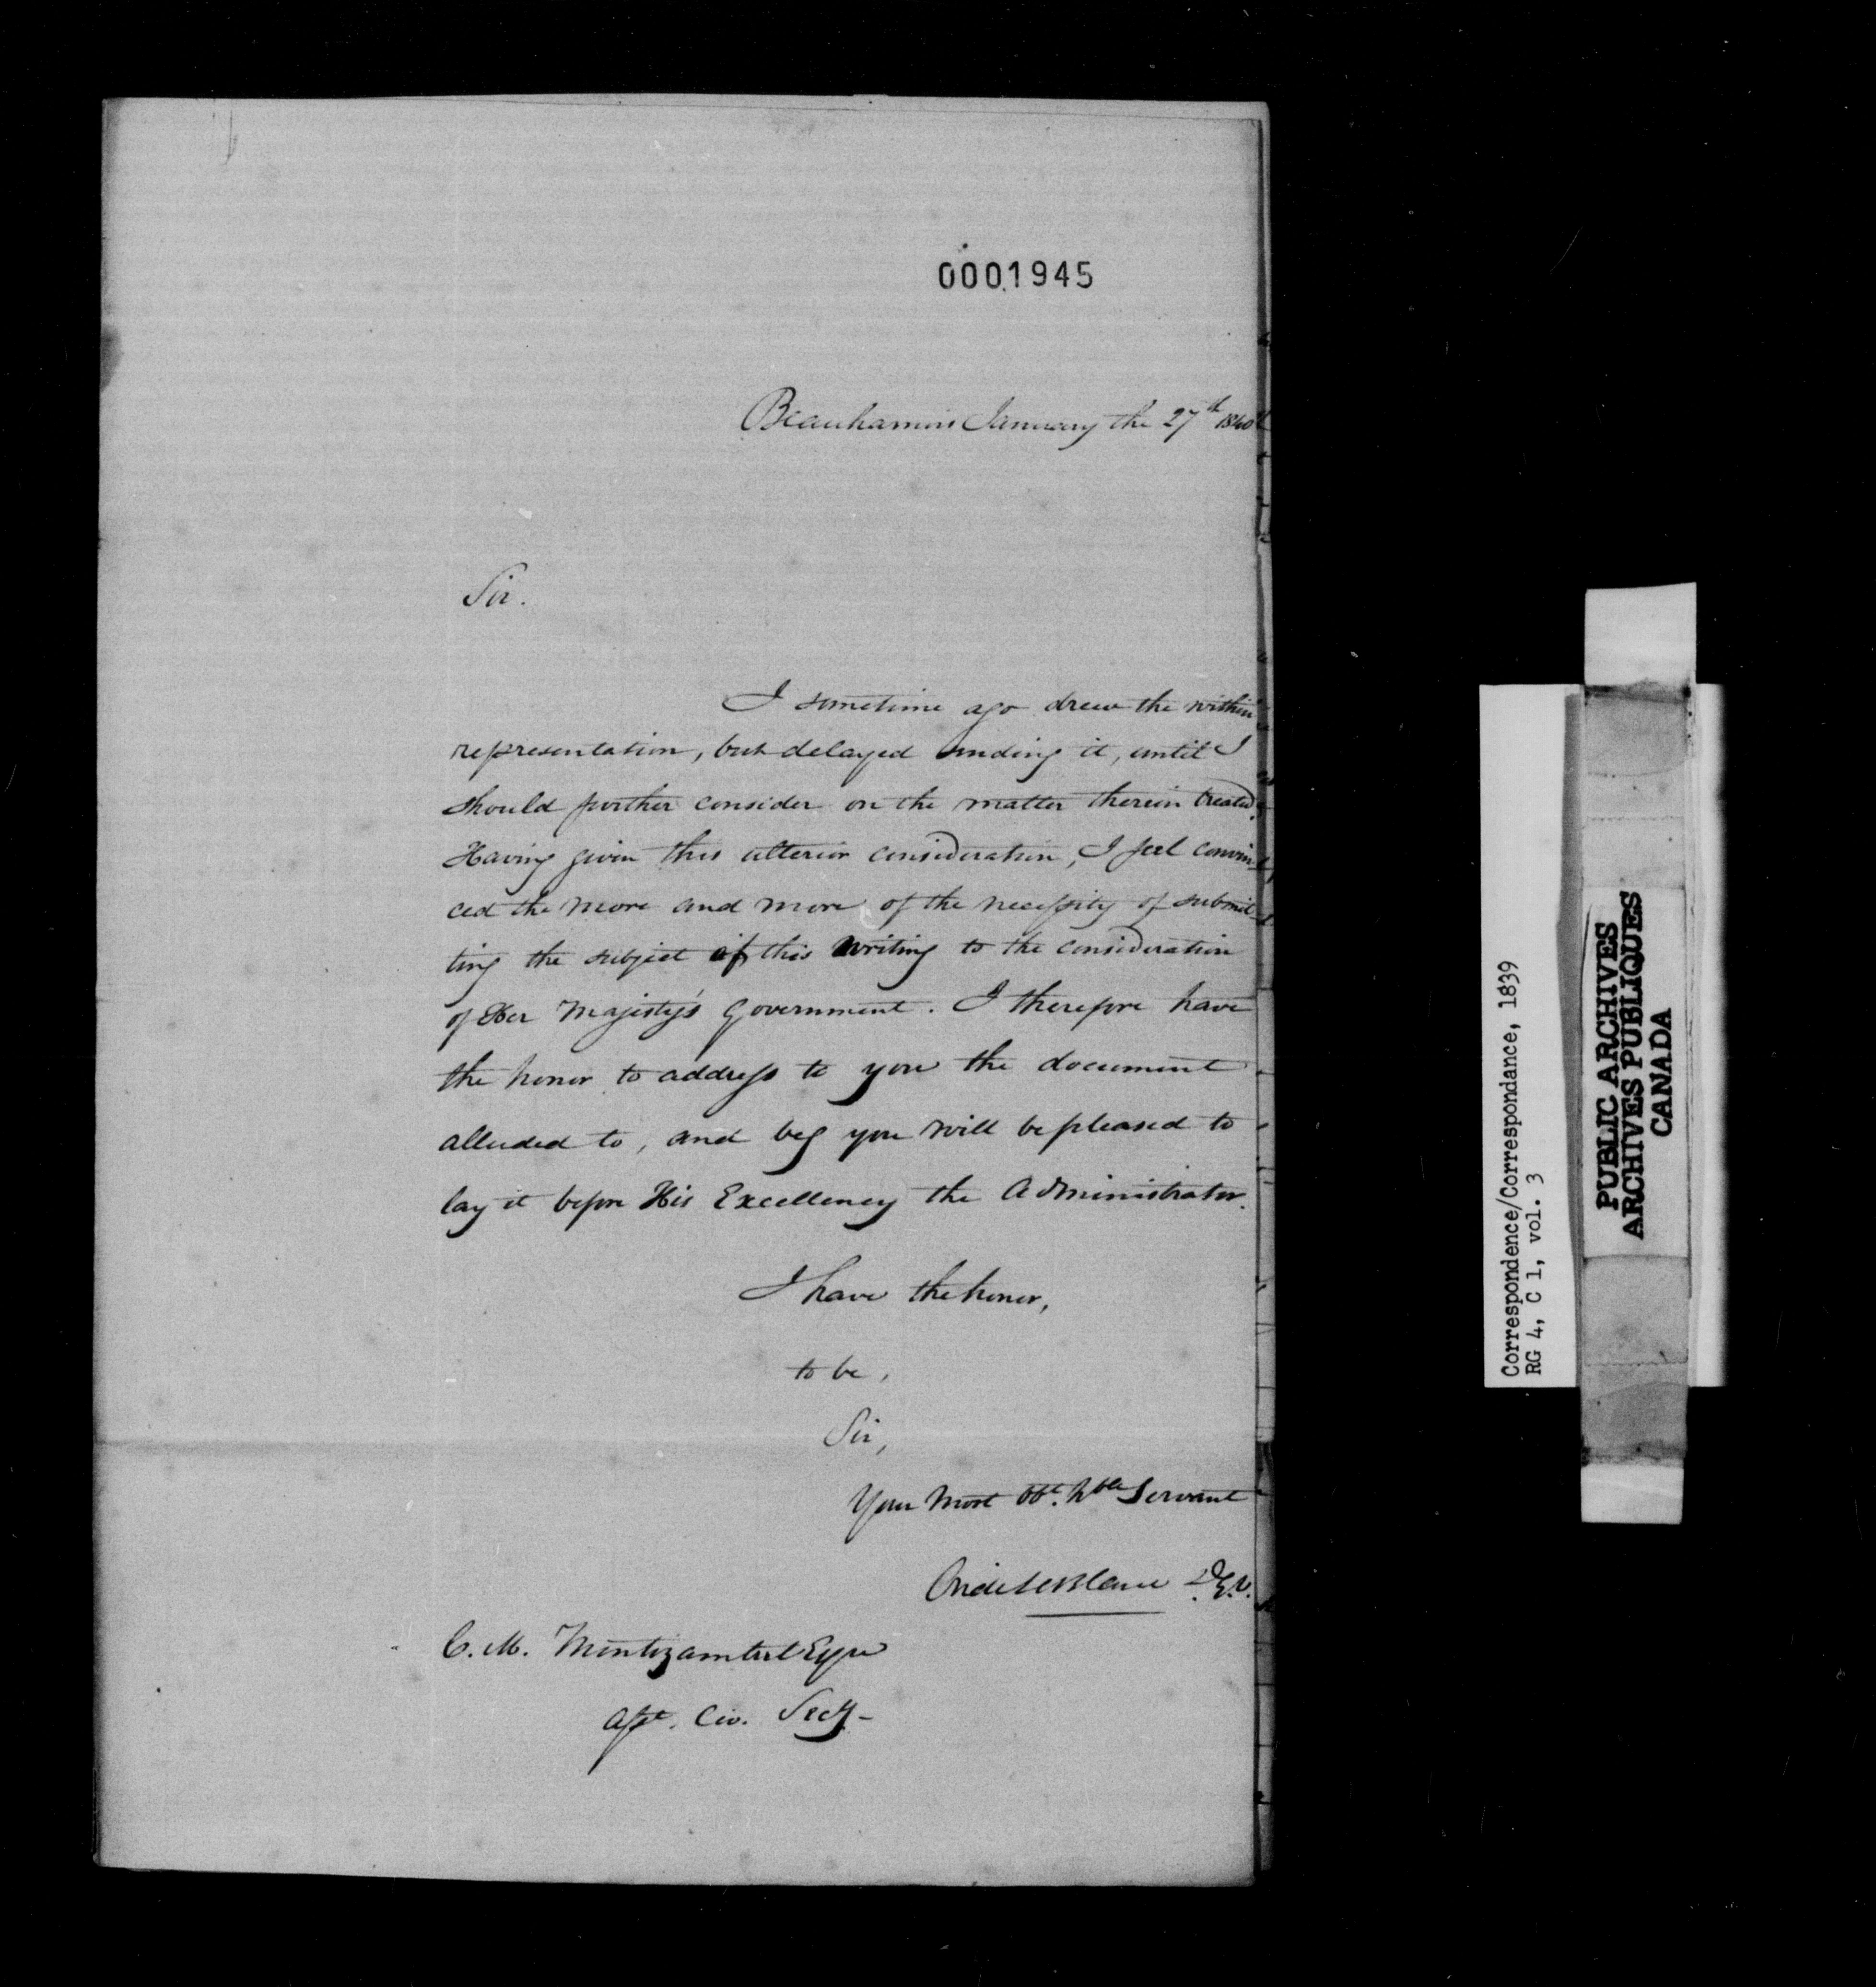 0001945
Beauharnois January the 27th 1840
Sir.
I sometime ago drew the within
representation, but delayed sending it, until I
should further consider on the matter therein treated.
Having given this ulterior consideration, I feel convin-
ced the more and more of the necessity of submit-
ting the subject of this writing to the consideration
of Her Majesty's Government. I therefore have
the honor to address to you the document
alluded to, and beg you will be pleased to
lay it before His Excellency the Administrator.
I have the honor,
to be,
Sir,
Your Most Obt. hble Servant
Ovide LeBlanc
C. M. Montizambert Esqre
Asst. Civ. Secy-
Correspondence/Correspondance, 1839
RG 4, C 1, vol. 3
PUBLIC ARCHIVES
ARCHIVES PUBLIQUES
CANADA